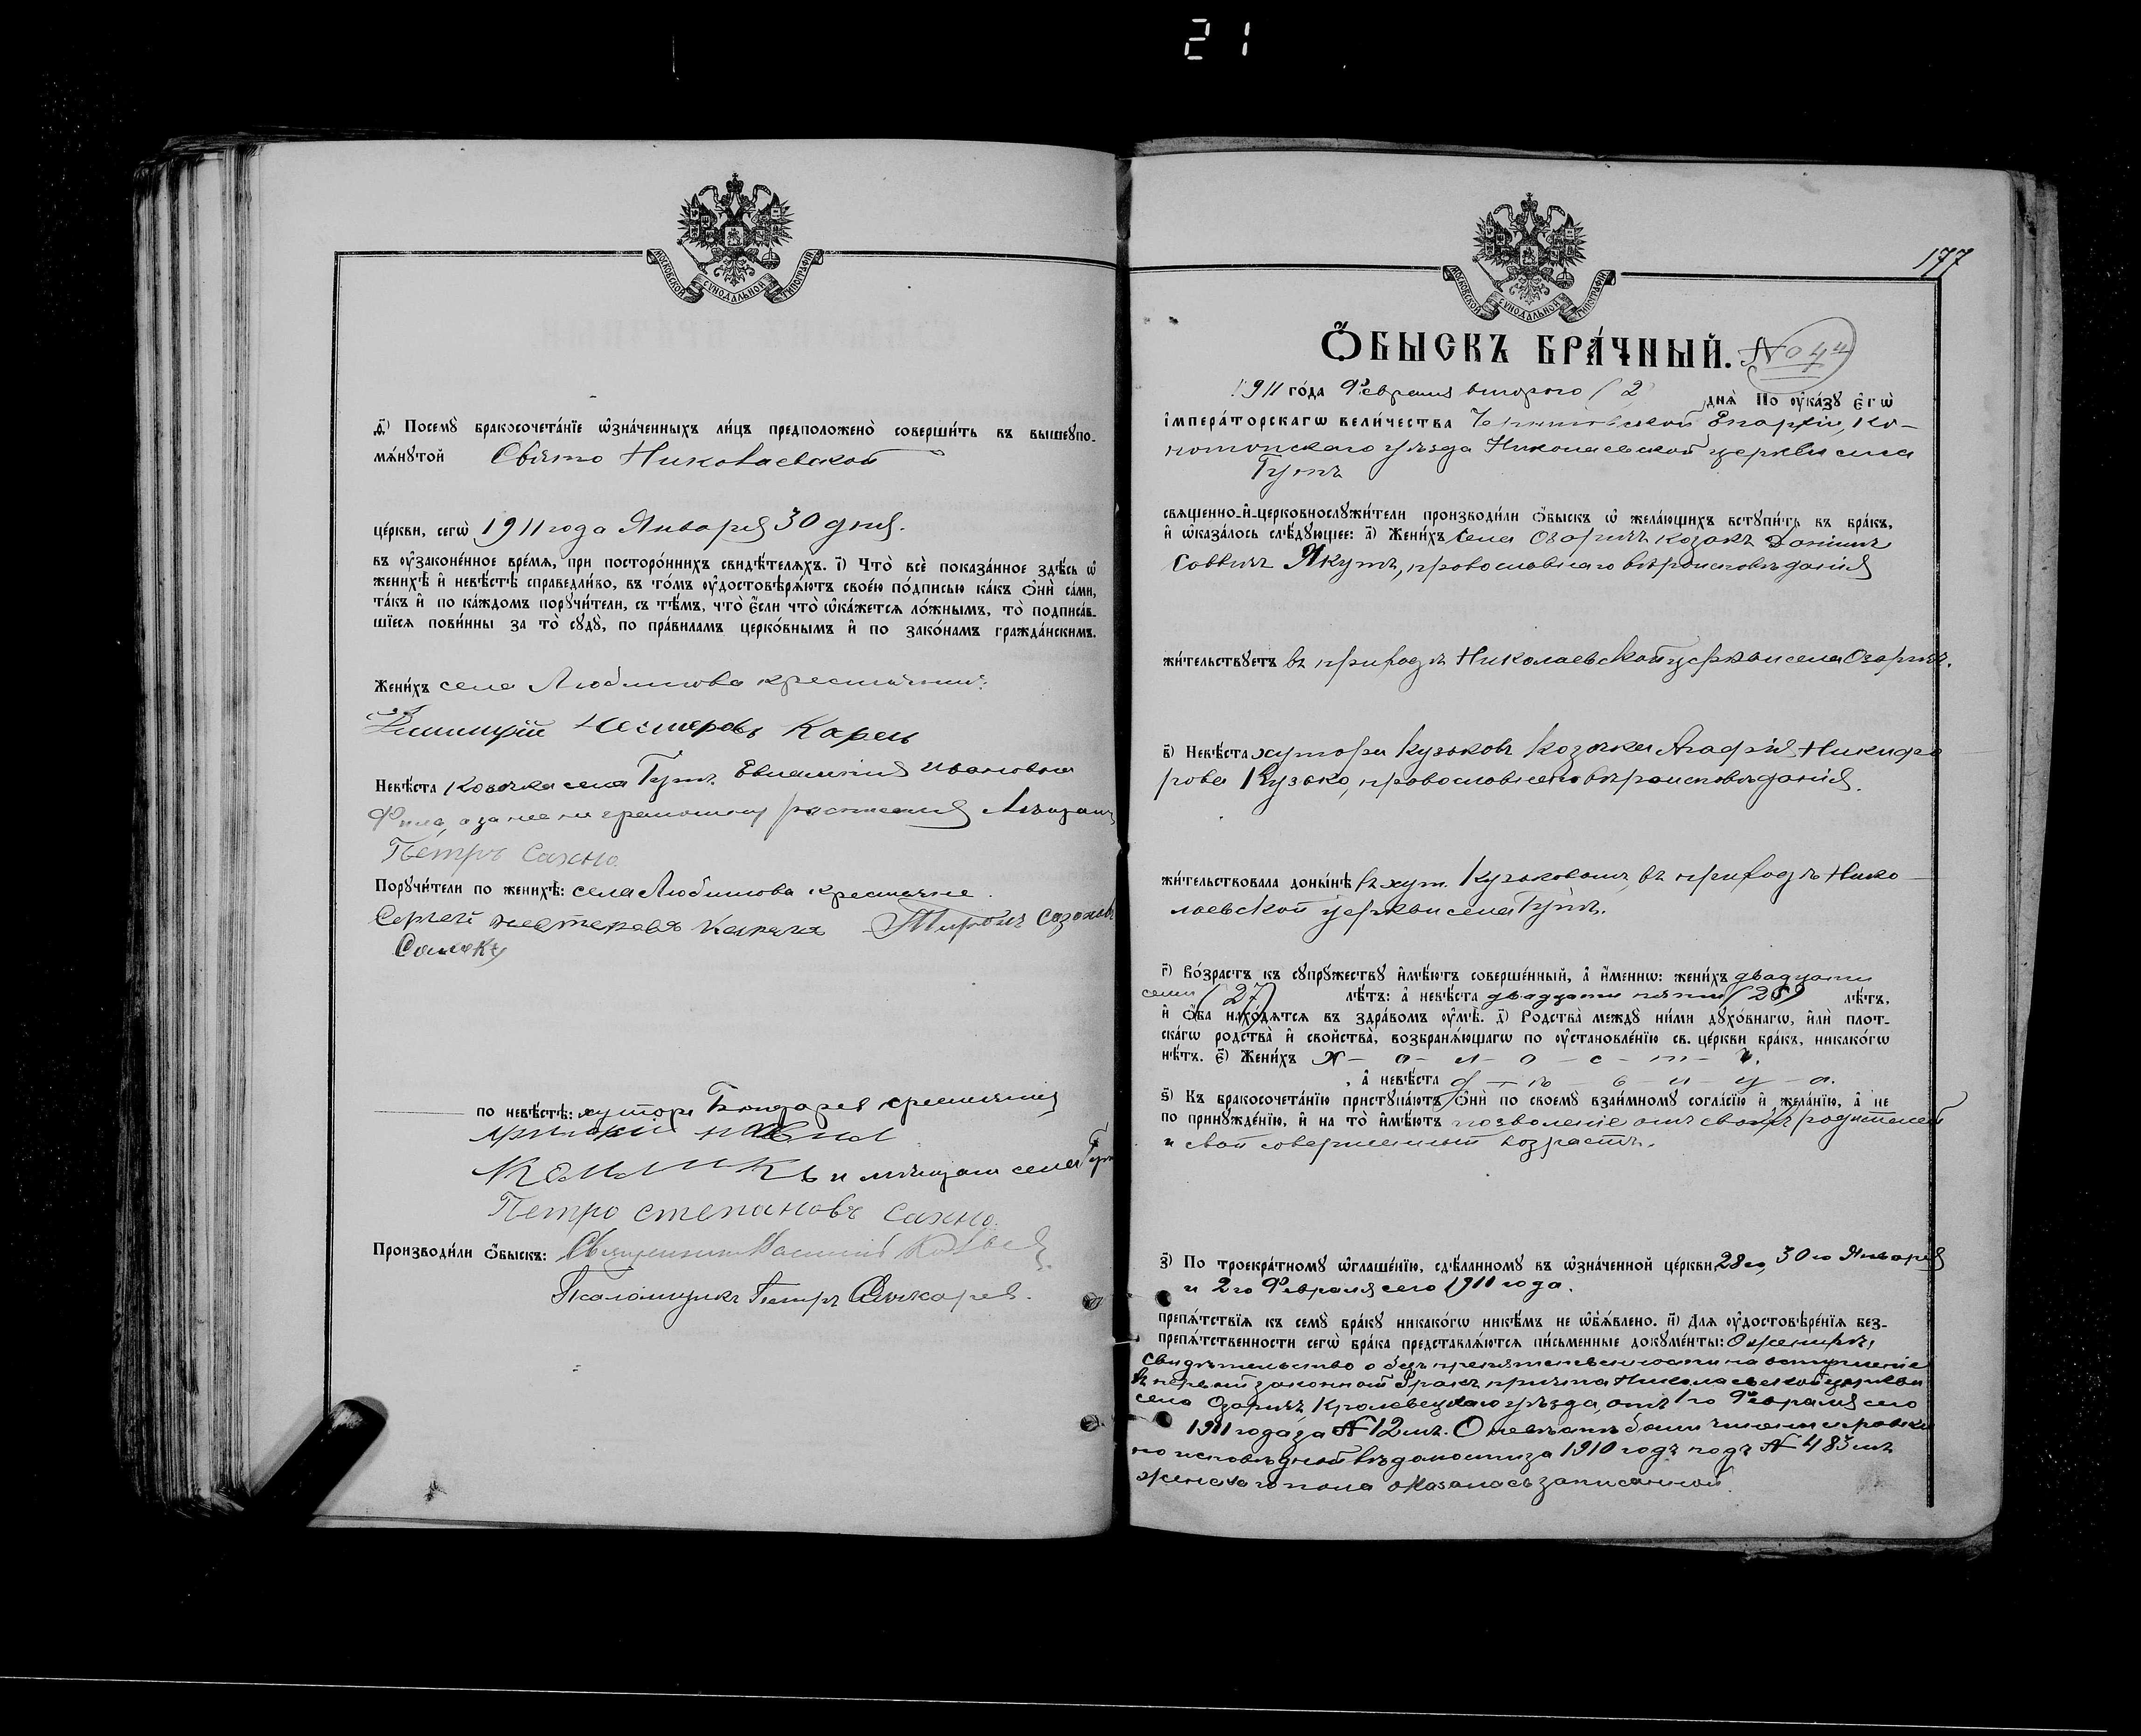 21
МОСКОВСКОЙ СѴНОДАЛЬНОЙ ТИПОГРАФІИ
д҃і) Посемꙋ̀ бракосочета́нїе ѡ҆зна́ченныхъ ли́цъ предположено̀ соверши́ть въ вышеꙋпо-
мѧ́нꙋтой Свято Николаевской
це́ркви, сегѡ̀ 1911 года Января 30 дня.
въ ᲂу҆зако́ненное вре́мѧ, при посторо́ннихъ свидѣ́телѧхъ. і҃) Что̀ всѐ показа́нное здѣ́сь ѡ҆
женихѣ̀ и҆ невѣ́стѣ справедли́во, въ то́мъ ᲂу҆достовѣрѧ́ютъ свое́ю по́дписью ка́къ ѻ҆нѝ са́ми,
та́къ и҆ по ка́ждомъ порꙋчи́тели, съ тѣ́мъ, что̀ є҆́сли что̀ ѡ҆ка́жетсѧ ло́жнымъ, то̀ подписа́в-
шїесѧ пови́нны за то̀ сꙋдꙋ̀, по пра́виламъ церко́внымъ и҆ по зако́намъ гражда́нскимъ.
Жени́хъ села Любитова крестьянинъ
Нестеровъ Карењ
Невѣ́ста козачка села Гутъ Ивановна
а за нее неграмотную
Петръ Сахно
Порꙋчи́тели по женихѣ̀: села Любитова крестьяне
Сергей Нестеровъ
по невѣ́стѣ: хутора Бондарев крестьянин
и мещанин села Гутъ
Петро Степановъ Сахно.
Производи́ли ѻ҆́быскъ: Священникъ Василий
Псаломщикъ Петръ
МОСКОВСКОЙ СѴНОДАЛЬНОЙ ТИПОГРАФІИ
177
Ѻ҆́БЫСКЪ БРА́ЧНЫЙ. № 44
1911 го́да Февраля второго (2 днѧ̀ По ᲂу҆ка́зꙋ є҆гѡ̀
і҆мпера́торскагѡ вели́чества Черниговской Епархіи, Ко-
нотопскаго уѣзда Николаевской церкви села
Гутъ
свѧще́нно-и҆-церковнослꙋжи́тели производи́ли ѻ҆́быскъ ѡ҆ жела́ющихъ встꙋпи́ть въ бра́къ,
и҆ ѡ҆каза́лось слѣ́дꙋющее: а҃) Жени́хъ села Озаричъ козакъ Даніилъ
Саввичъ Якутъ, православнаго вѣроисповѣданія
жи́тельствꙋетъ въ приходѣ Николаевской церкви села Озаричъ.
в҃) Невѣ́ста хутора Кузьковъ козачка Агафія Никифо
рова Кузько, православнаго вѣроисповѣданія.
жи́тельствовала доны́нѣ въ хут. Кузьковомъ, въ приходѣ Нико
лаевской церкви села Гутъ.
г҃) Во́зрастъ къ сꙋпрꙋ́жествꙋ и҆мѣ́ютъ соверше́нный, а҆ и҆́меннѡ: жени́хъ двадцати
семи (27) лѣ́тъ: а҆ невѣ́ста двадцати пяти (25) лѣ́тъ,
и҆ ѻ҆́ба нахо́дѧтсѧ въ здра́вомъ ᲂу҆мѣ̀. д҃) Родства̀ междꙋ̀ ни́ми дꙋхо́внагѡ, и҆лѝ плот-
ска́гѡ родства̀ и҆ сво́йства, возбранѧ́ющагѡ по ᲂу҆становле́нїю св. це́ркви бра́къ, никако́гѡ
нѣ́тъ. є҃) Жени́хъ х - о - л - о - с - т - ъ.
, а҆ невѣ́ста д - ѣ - в - и - ц - а.
ѕ҃) Къ бракосочета́нїю пристꙋпа́ютъ ѻ҆нѝ по своемꙋ̀ взаи́мномꙋ согла́сїю и҆ жела́нїю, а҆ не
по принꙋжде́нїю, и҆ на то̀ и҆мѣ́ютъ позволеніе отъ своихъ родителей
и свой совершенный возрастъ.
з҃) По троекра́тномꙋ ѡ҆глаше́нїю, сдѣ́ланномꙋ въ ѡ҆зна́ченной це́ркви 28го, 30го Января
и 2го Февраля сего 1911 года.
препѧ́тствїѧ къ семꙋ̀ бра́кꙋ никако́гѡ никѣ́мъ не ѡ҆б̾ѧ́влено. и҃) Длѧ ᲂу҆достовѣре́нїѧ без-
препѧ́тственности сегѡ̀ бра́ка представлѧ́ютсѧ пи́сьменные докꙋме́нты: О женихѣ,
свидѣтельство о безпрепятственности на вступленіе
въ первый законный бракъ причта Николаевской церкви
села Озаричъ, Кролевецкаго уѣзда, отъ 1го Февраля сего
1911 года за № 12мъ. О невѣстѣ
по исповѣдной вѣдомости за 1910 годъ подъ № 483мъ
женскаго пола оказалась записанной.